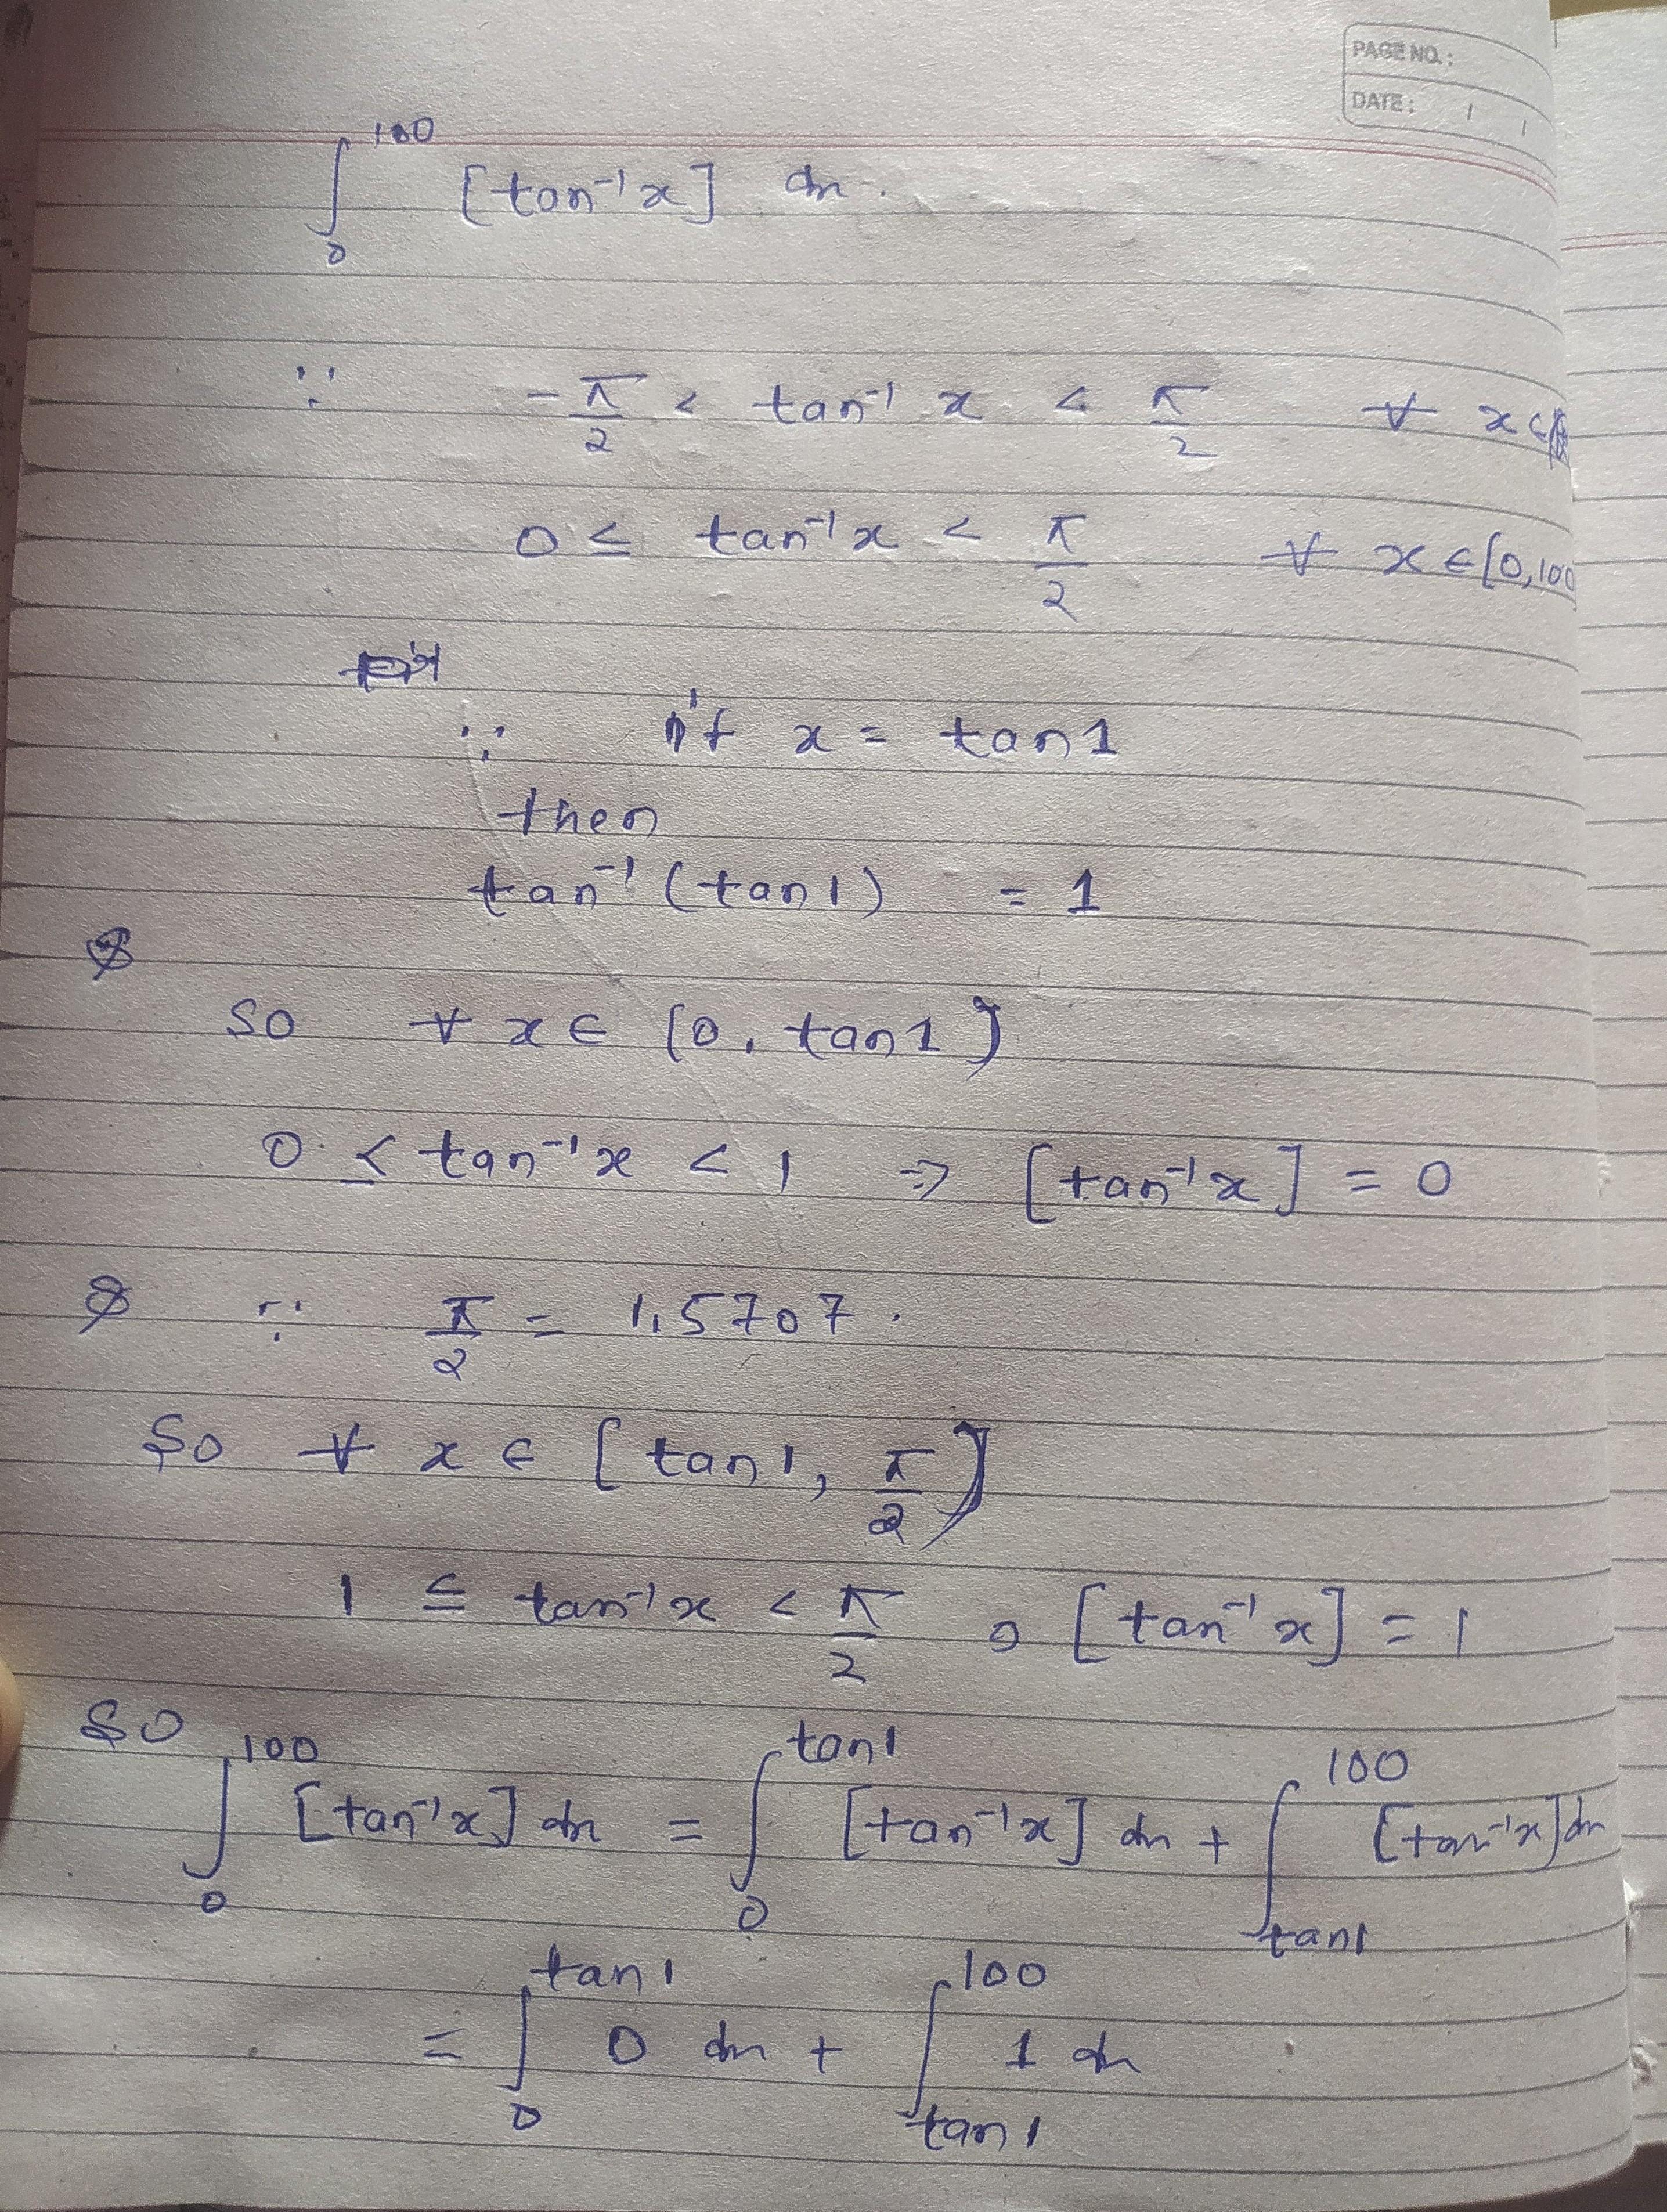 PAGE NO. :
DATE : / /
∫₀¹⁰⁰ [tan⁻¹x] dx .
∵ -π/2 < tan⁻¹ x < π/2 ∀ x ∈
0 ≤ tan⁻¹x < π/2 ∀ x ∈ [0,100
∵ if x = tan1
then
tan⁻¹ (tan1) = 1
So ∀ x ∈ [0, tan1)
0 ≤ tan⁻¹x < 1 ⇒ [tan⁻¹x] = 0
∵ π/2 = 1.5707 .
So ∀ x ∈ [tan1, π/2)
1 ≤ tan⁻¹x < π/2 , [tan⁻¹x] = 1
So
∫₀¹⁰⁰ [tan⁻¹x] dx = ∫₀^tan1 [tan⁻¹x] dx + ∫_tan1^100 [tan⁻¹x] dx
= ∫₀^tan1 0 dx + ∫_tan1^100 1 dx